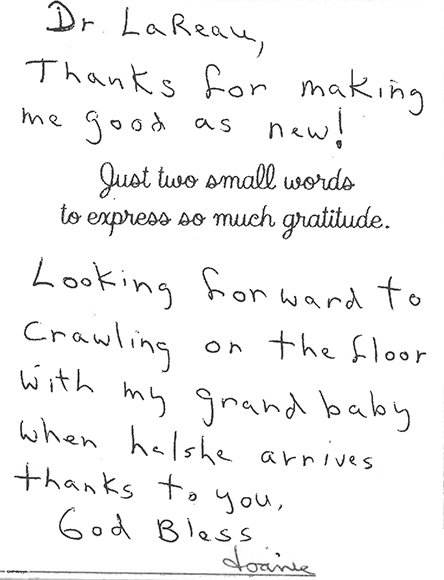 Dr. LaReau,
Thanks for making
me good as new!
Just two small words
to express so much gratitude.
Looking forward to
crawling on the floor
with my grand baby
when he/she arrives
thanks to you.
God Bless
Joanne